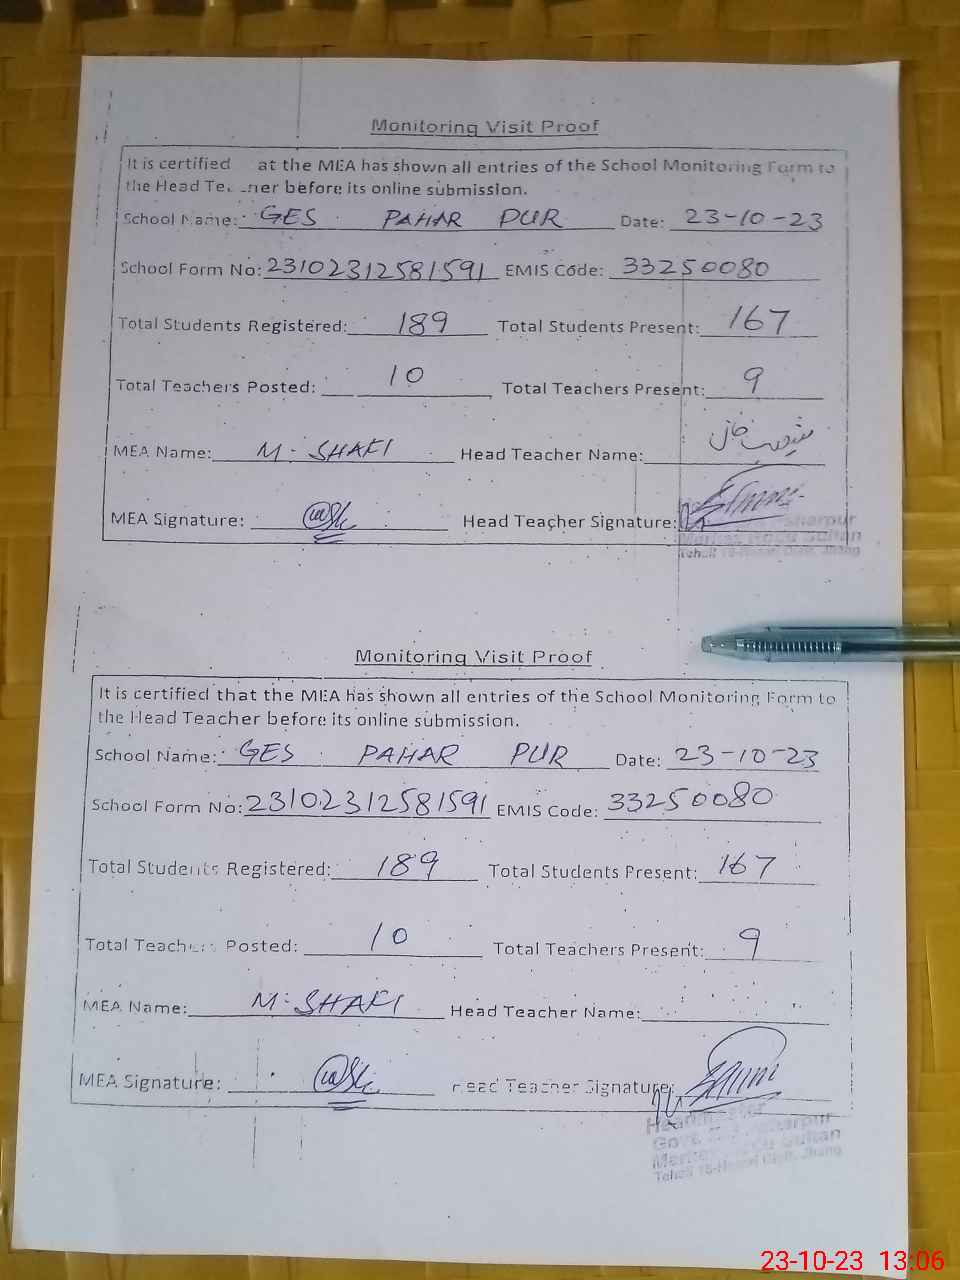 Monitoring Visit Proof
It is certified at the MEA has shown all entries of the School Monitoring Form to
the Head Te ner before its online submission.
School Name: GES PAHAR PUR Date: 23-10-23
School Form No: 23102312581591 EMIS Code: 33250080
Total Students Registered: 189 Total Students Present: 167
Total Teachers Posted: 10 Total Teachers Present: 9
MEA Name: M. SHAFI Head Teacher Name:
MEA Signature: Head Teacher Signature:
Sultan
Jhang
Monitoring Visit Proof
It is certified that the MEA has shown all entries of the School Monitoring Form to
the Head Teacher before its online submission.
School Name: GES PAHAR PUR Date: 23-10-23
School Form No: 23102312581591 EMIS Code: 33250080
Total Students Registered: 189 Total Students Present: 167
Total Teachers Posted: 10 Total Teachers Present: 9
MEA Name: M. SHAFI Head Teacher Name:
MEA Signature: Head Teacher Signature:
Govt.
Sultan
Jhang
23-10-23 13:06